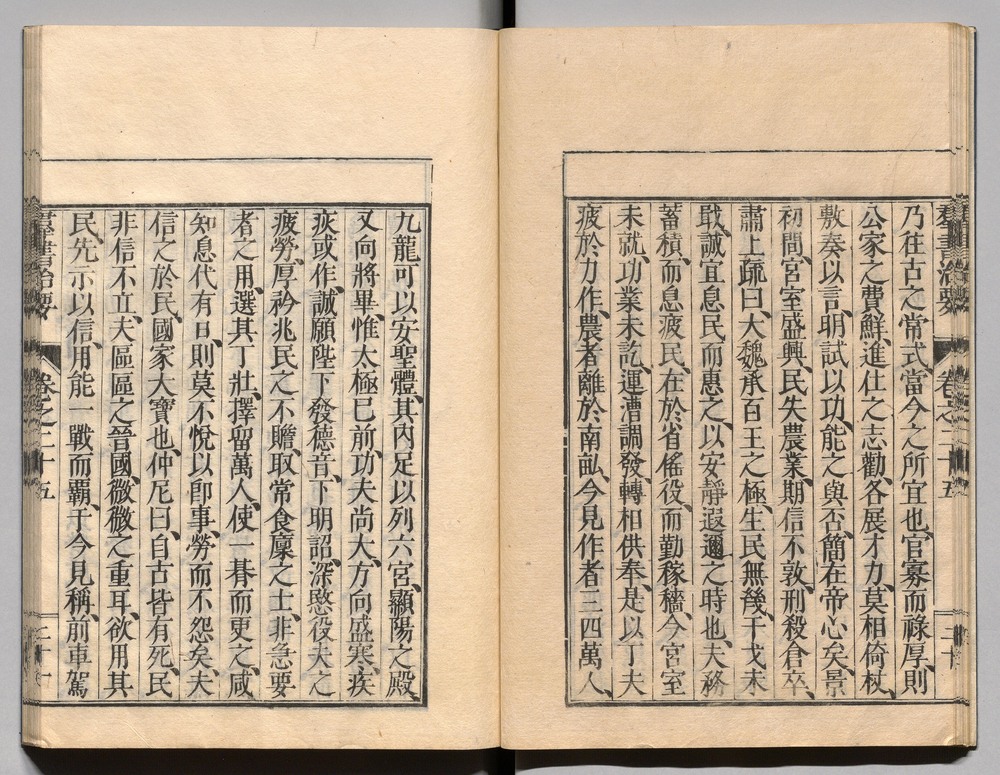 羣書治要 卷之二十五 二十
乃往古之常式、當今之所宜也、官寡而祿厚、則
公家之費鮮、進仕之志勸、各展才力、莫相倚杖、
敷奏以言、明試以功、能之與否、簡在帝心矣、景
初間、宮室盛興、民失農業、期信不敦、刑殺倉卒、
肅上疏曰、大魏承百王之極、生民無幾、干戈未
戢、誠宜息民而惠之、以安靜遐邇之時也、夫務
蓄積、而息疲民、在於省徭役、而勤稼穡、今宮室
未就、功業未訖、運漕調發、轉相供奉、是以丁夫
疲於力作、農者離於南畝、今見作者三四萬人、
九龍可以安聖體、其內足以列六宮、顯陽之殿、
又向將畢、惟太極已前、功夫尚大、方向盛寒、疾
疢或作、誠願陛下發德音、下明詔、深愍役夫之
疲勞、厚矜兆民之不贍、取常食廩之士、非急要
者之用、選其丁壯、擇留萬人、使一朞而更之、咸
知息代有日、則莫不悅以卽事、勞而不怨矣、夫
信之於民、國家大寶也、仲尼曰、自古皆有死、民
非信不立、夫區區之晉國、微微之重耳、欲用其
民、先示以信、用能一戰而霸、于今見稱、前車駕
羣書治要 卷之二十五 二十一